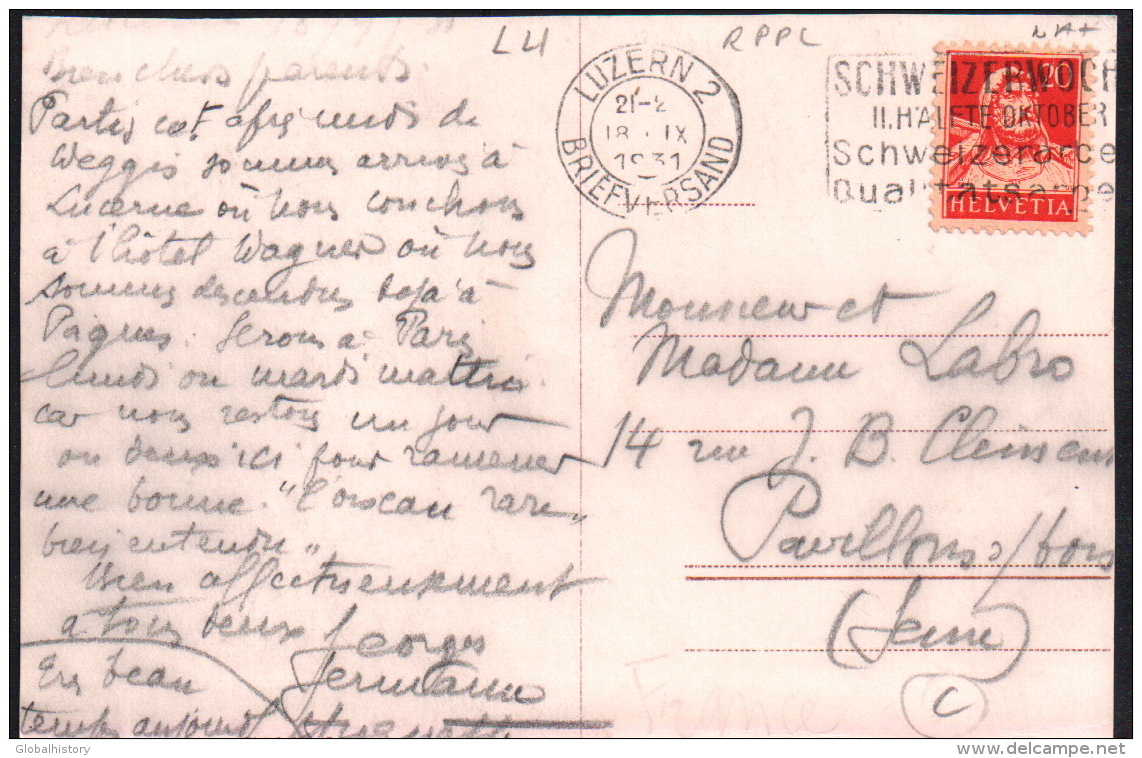 18/9/31
Bien chers parents.
Partis cet après midi de
Weggis sommes arrivés à
Lucerne où nous couchons
à l'hôtel Wagner où nous
sommes descendus déjà à
Pâques. Serons à Paris
lundi ou mardi matin
car nous restons un jour
ou deux ici pour ramener
une bonne. "l'oiseau rare"
bien entendu".
Bien affectueusement
à tous deux Georges
Germaine
Très beau
temps aujourd'
LU
RPPL
LUZERN 2
21-2
18. IX
1931
BRIEFVERSAND
SCHWEIZERWOCH
II. HÄLFTE OKTOBER
Schweizerarbe
Qualitätsarbe
20
HELVETIA
Monsieur et
Madame Labro
14 rue J. B. Clément
Pavillons s/bois
(Seine)
France
C
Globalhistory
www.delcampe.net